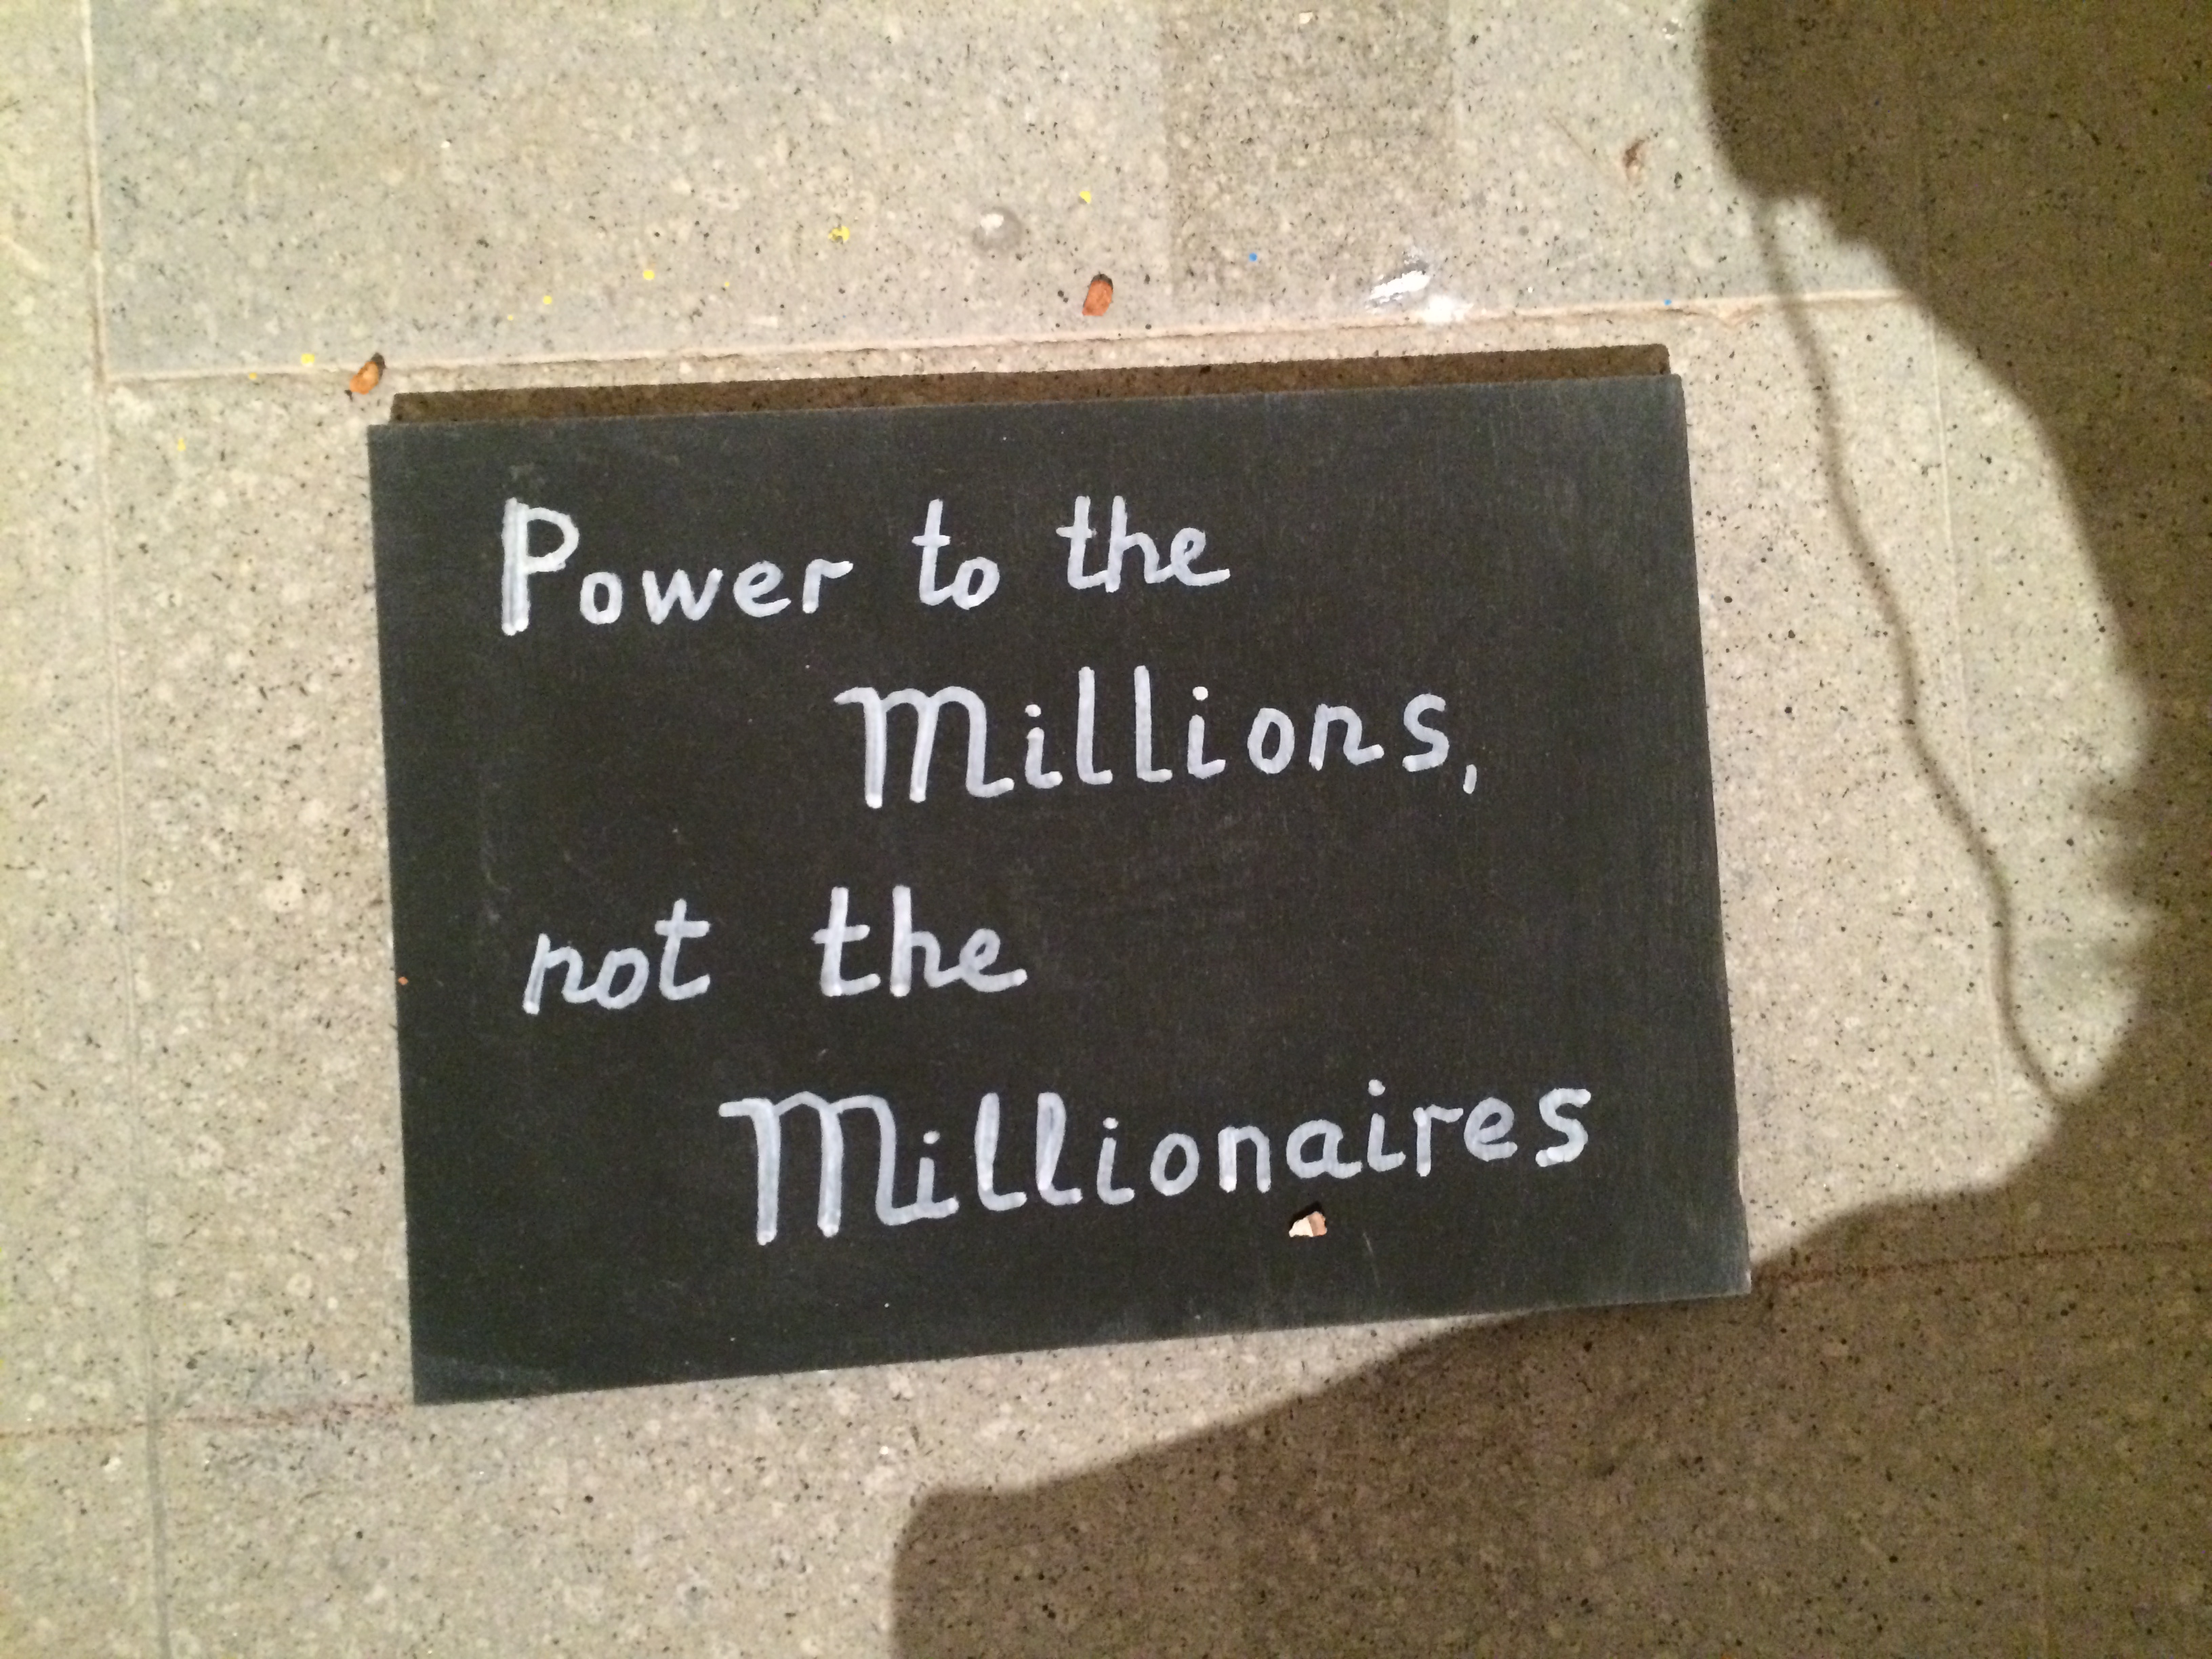 Power to the
Millions,
not the
Millionaires